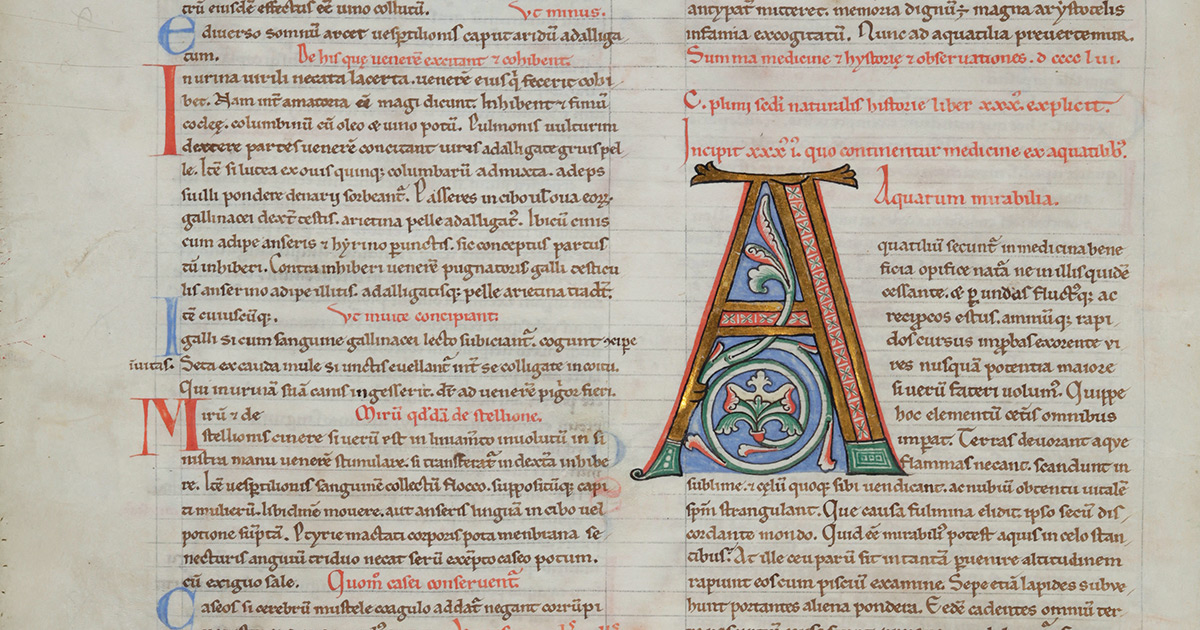 trū eiusdē effectus eē uino collutū. Ut minus.
E diuerso somnū arcet uesp̄tilionis caput aridū adalliga
tum. De his quę uenerē excitant ⁊ cohibent.
In urina uirili necata lacerta. uenerē eius q̇ fecerit cohi
bet. Nam int̄ amatoria eū magi dicunt. Inhibent ⁊ fimū
coclęę. columbinū cū oleo & uino potū. Pulmonis uulturini
dextere partes uenerē concitant uiris adalligate gruis pel
le. Itē si lutea ex ouis quinq; columbarū admixta. adeps
suilli pondere denarij sorbeant̄. Passeres in cibo uel oua eorꝝ.
gallinacei dext̄ testis. arietina pelle adalligat᷒. Ibicū cinis
cum adipe anseris ⁊ hyrino p̱unctis. sic conceptus partus
tū inhiberi. Contra inhiberi uenerē pugnatoris galli testicu
lis anserino adipe illitis. adalligatisq; pelle arietina tradt̄.
Itē cuiuscūq;. Ut mulite concipiant.
galli si cum sanguine gallinacei lecto subiciant̄. cogunt ꝯcipe
inuitas. Seta ex cauda mule si iunctis euellant̄ int̄ se colligate in coitu.
Qui in urinā suā canis ingesserit. dr̄ ad uenerē pig̓or fieri.
Mirū ⁊ de Mirū qd̄dā de stellione.
stellionis cinere si uerū est in linam̄to inuolutū in si
nistra manu uenerē stimulare. si transferat̄ in dext̄a inhibe
re. Itē uesp̄tilionis sanguinē collectū flocco. suppositūq; capi
ti mulierū. libidinē mouere. aut anseris linguā in cibo uel
potione sūp̄tā. Ptyrie mactati corporis pota menbrana se
necturis anguiū triduo necat serū exēpto caseo potum.
cū exiguo sale. Quom̄ casei conseruent̄
Caseos si cerebrū mustele coagulo addat̄ negant corrūpi
antypat̄ mitteret. memoria dignū; magna arystotelis
infamia excogitatū. Nunc ad aquatilia preuertemur.
Summa medicine ⁊ hystorię ⁊ obseruationes. d cccc l ui.
C. plini sedi naturalis historie liber xxx̊. explicit.
Incipit xxx̊ i. quo continentur medicine ex aquatilib᷒.
Aquarum mirabilia.
Aquatiliū secunt̄ in medicina bene
ficia opifice natā ne in illis quidē
cessante. & ꝑ undas fluctusq; ac
reciprocos estus. amniūq; rapi-
dos cursus imp̄bas exorente ui
res nusquā potentia maiore
si uerū fateri uolum᷒. Quippe
hoc elementū cętis omnibus
imꝑat. Terras deuorant aque
flammas necant. scandunt in
sublime. ⁊ cęlū quoq; sibi uendicant. ac nubiū obtentu uitalē
sp̄m strangulant. Que causa fulmina elidit ipso secū dis-
cordante mondo. Quid eē mirabil᷒ potest aquis in celo stan-
tibus? At ille ceu parū sit in tantā ꝑuenire altitudinem
rapiunt eo scum pisciū examine. Sepe etiā lapides subue
hunt portantes aliena pondera. Eedē cadentes omniū ter-